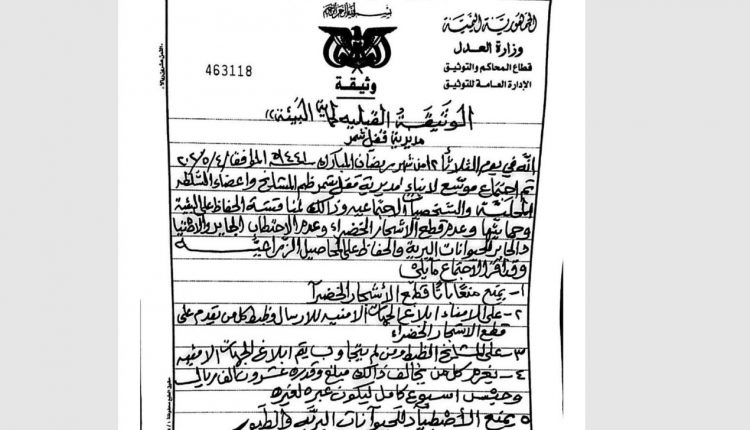 بسم الله الرحمن الرحيم
الجمهورية اليمنية
وزارة العدل
قطاع المحاكم والتوثيق
الإدارة العامة للتوثيق
463118
وثيقة
الوثيقة القبلية لحماية البيئة
مديرية قفل شمر
انه في يوم الثلاثاء من شهر رمضان المبارك الموافق
تم اجتماع موسع لابناء مديرية قفل شمر ظم المشايخ واعضاء السلطه
المحلية والشخصيات الاجتماعيه وذالك لمناقشة الحفاظ على البيئة
وحمايتها وعدم قطع الاشجار الخضراء وعدم الاحتطاب الجاير والاصطياد
الجاير للحيوانات البرية والحفاظ على المحاصيل الزراعية
وقد اقر الاجتماع مايلي
١- يمنع منعاً باتاً قطع الأشجار الخضرآ
٢- على الامناء ابلاغ الجهات الامنيه للارسال وظبط كل من يقدم على
قطع الاشجار الخضراء
٣- على المشايخ الظبط ومن لم يتجاوب يتم ابلاغ الجهات الامنيه
٤- يغرم كل من يخالف ذالك مبلغ وقدره عشرون الف ريال
وحبس اسبوع كامل ليكون عبره لغيره
٥ يمنع الأصطياد للحيوانات البريه والطيور